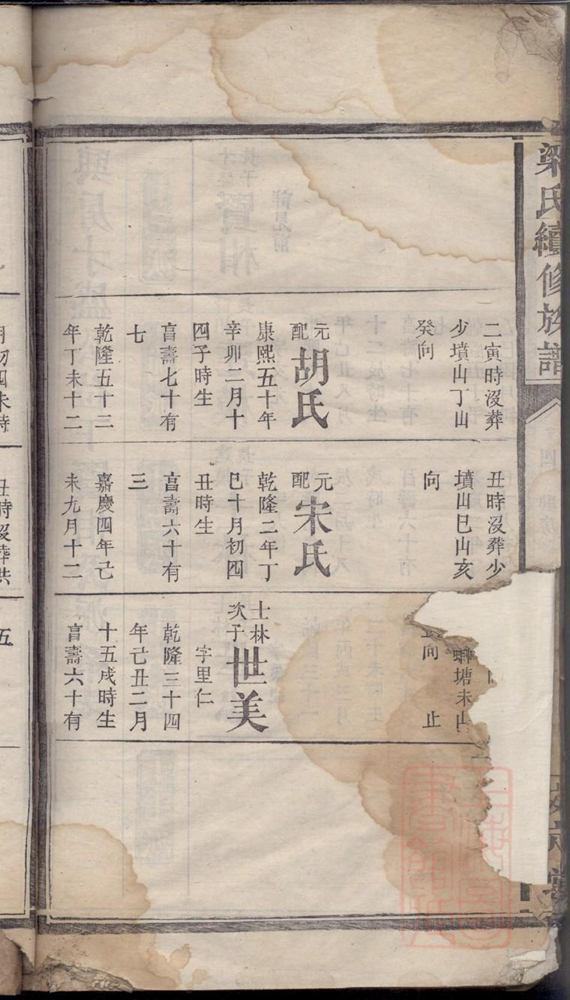 梁氏續修族譜
二寅時沒葬
少墳山丁山
癸向
元配胡氏
康熙五十年
辛卯二月十
四子時生
享壽七十有
七
乾隆五十三
年丁未十二
丑時沒葬少
墳山巳山亥
向
元配宋氏
乾隆二年丁
巳十月初四
丑時生
享壽六十有
三
嘉慶四年己
未九月十二
塘未山
向 止
士林次子世美
字里仁
乾隆三十四
年己丑二月
十五戌時生
享壽六十有
月初四未時
丑時沒葬共
五